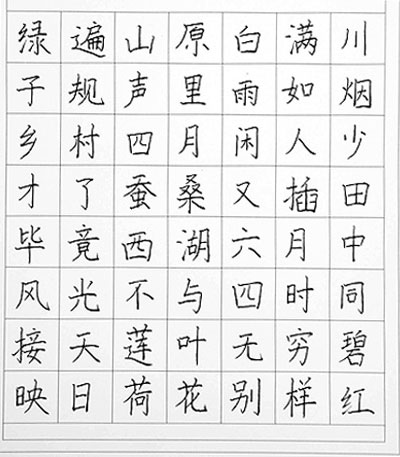 绿遍山原白满川
子规声里雨如烟
乡村四月闲人少
才了蚕桑又插田
毕竟西湖六月中
风光不与四时同
接天莲叶无穷碧
映日荷花别样红